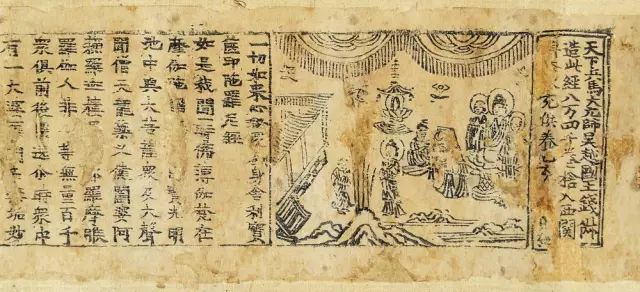 天下兵馬大元帥吳越國王錢俶
造此經八万四千卷捨入西關
充供養乙亥
一切如來心全身舍利寶
篋印陀羅尼經
如是我聞一時佛薄伽梵在
摩伽陀國寶光明
池中與大菩薩衆及大聲
聞僧天龍藥叉健闥婆阿
蘇羅迦樓羅羅摩睺
羅伽人非人等無量百千
衆俱前後遶尒時衆中
有一大婆羅門名無垢妙